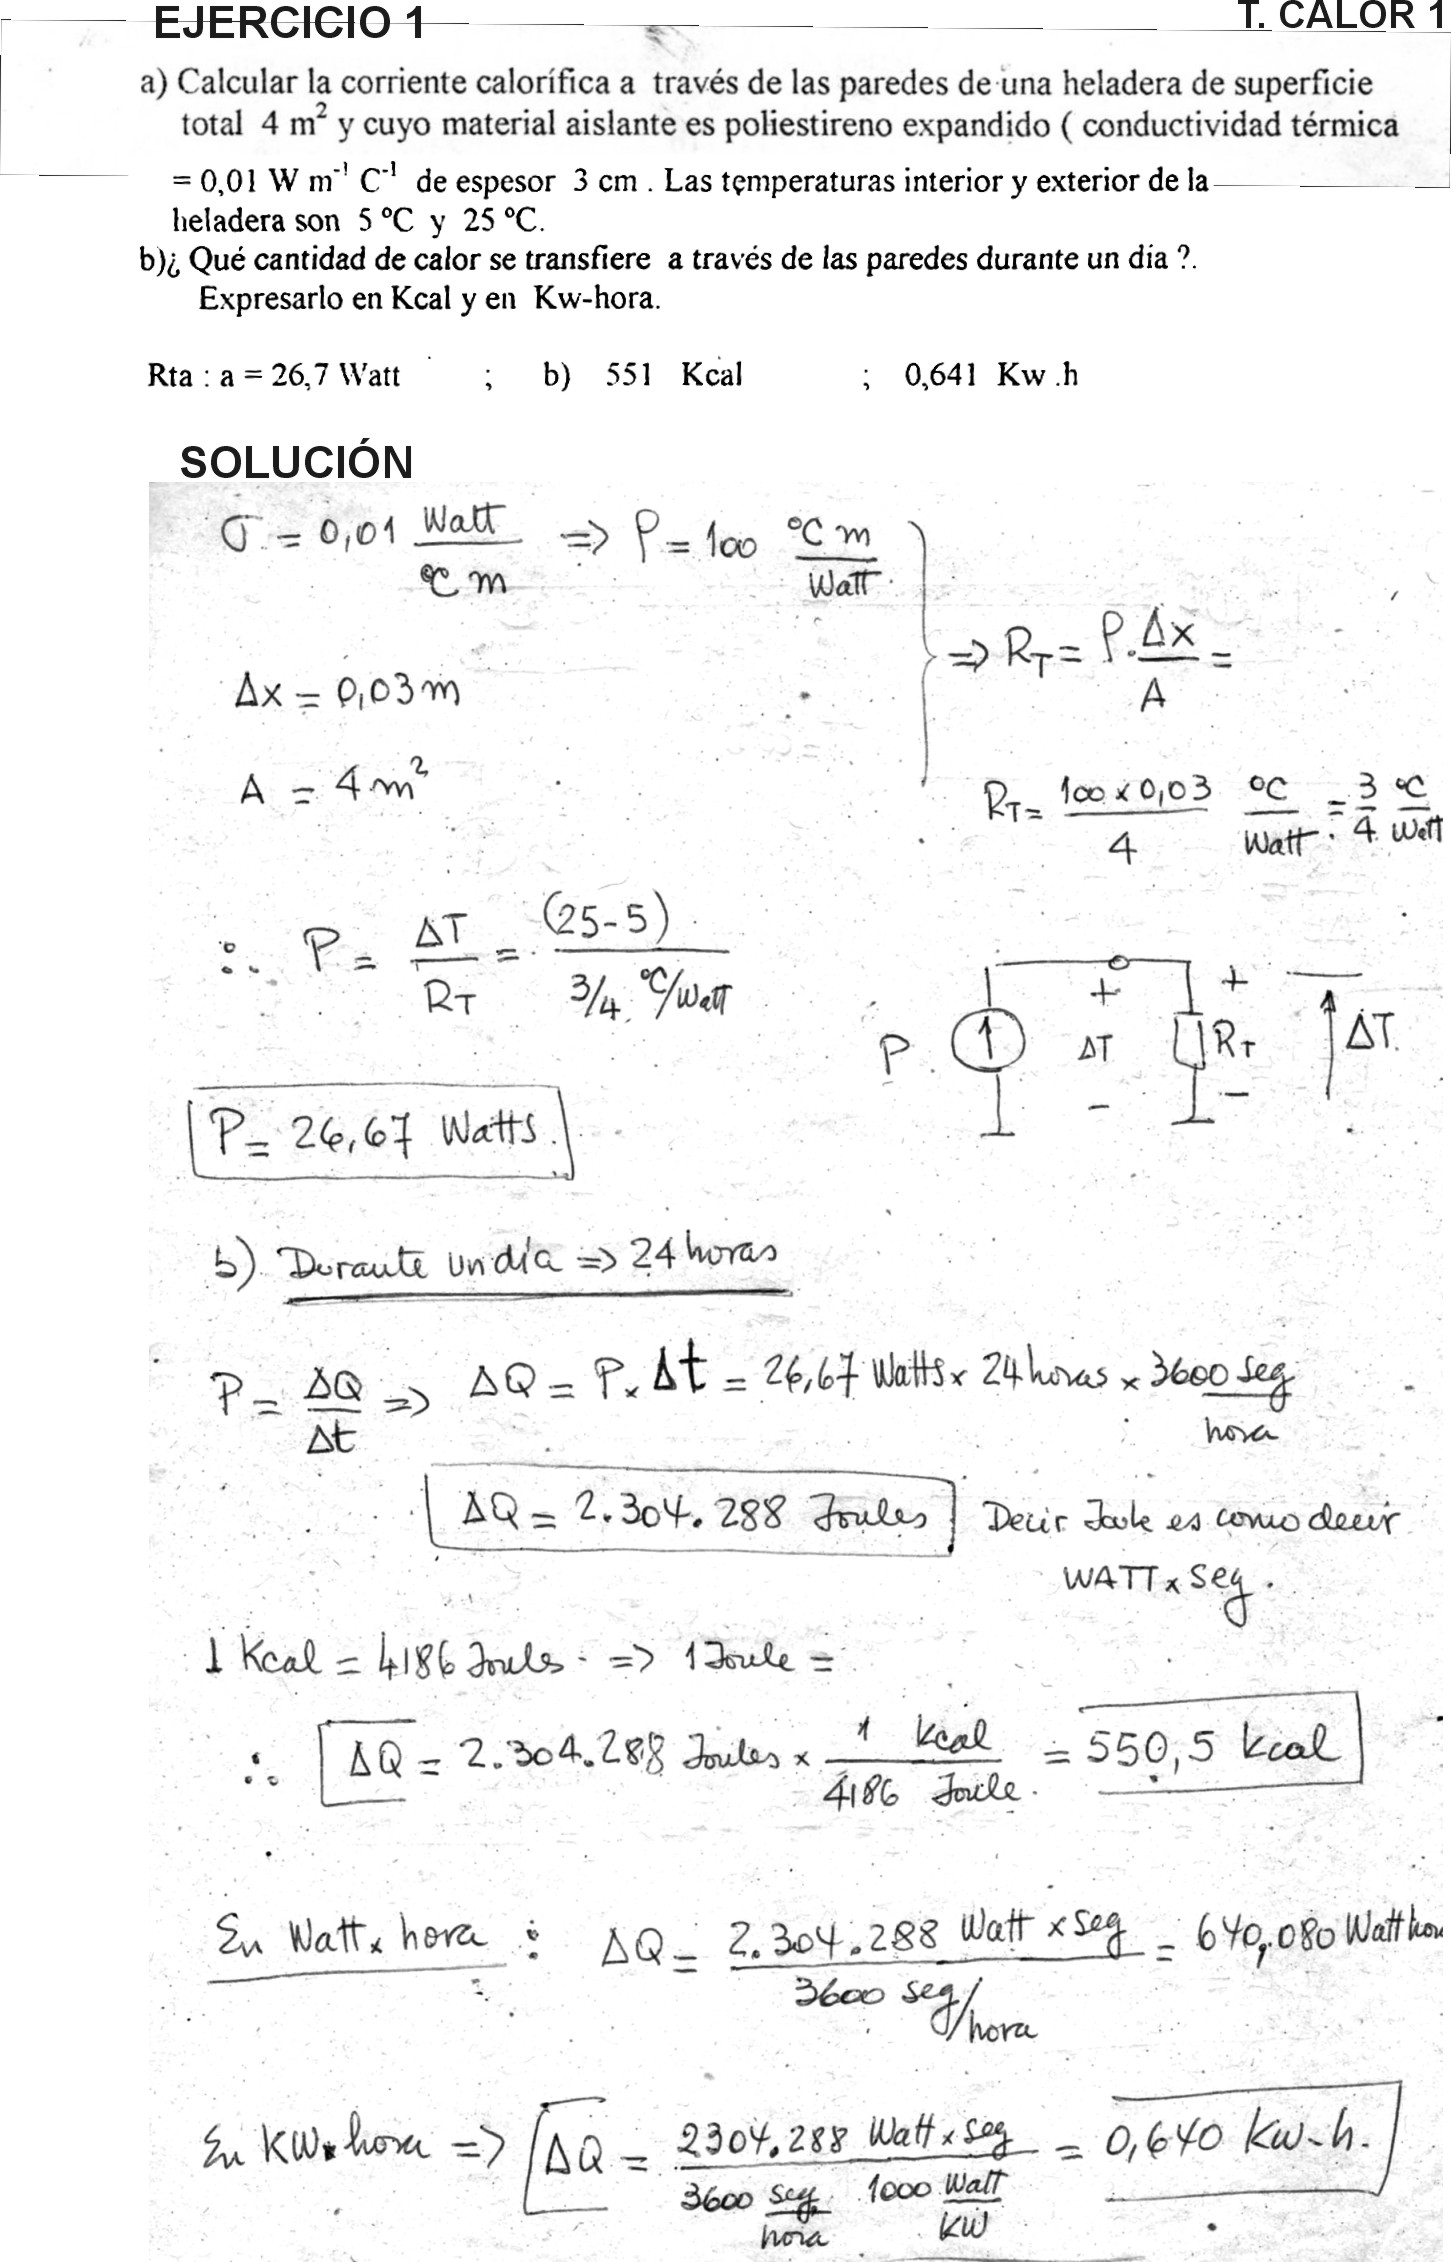 EJERCICIO 1
T. CALOR 1
a) Calcular la corriente calorífica a través de las paredes de una heladera de superficie
total 4 m² y cuyo material aislante es poliestireno expandido ( conductividad térmica
= 0,01 W m⁻¹ C⁻¹ de espesor 3 cm . Las temperaturas interior y exterior de la
heladera son 5 ºC y 25 ºC.
b)¿ Qué cantidad de calor se transfiere a través de las paredes durante un día ?.
Expresarlo en Kcal y en Kw-hora.
Rta : a = 26,7 Watt ; b) 551 Kcal ; 0,641 Kw .h
SOLUCIÓN
σ = 0,01 Watt/°C m => ρ = 100 °C m/Watt
Δx = 0,03 m
=> R_T = ρ . Δx/A =
A = 4 m²
R_T = 100 x 0,03/4 °C/Watt = 3/4 °C/Watt
∴ P = ΔT/R_T = (25-5)/(3/4 °C/Watt)
P ↑ + ΔT - + R_T - ΔT
P = 26,67 Watts.
b) Durante un día => 24 horas
P = ΔQ/Δt => ΔQ = P x Δt = 26,67 Watts x 24 horas x 3600 seg/hora
ΔQ = 2.304.288 Joules Decir Joule es como decir
WATT x seg.
1 Kcal = 4186 Joules => 1 Joule =
∴ ΔQ = 2.304.288 Joules x 1 kcal/4186 Joule. = 550,5 kcal
En Watt x hora : ΔQ = 2.304.288 Watt x seg/3600 seg/hora = 640,080 Watt hor
En KW.hora => ΔQ = 2304.288 Watt x seg/3600 seg/hora 1000 Watt/KW = 0,640 Kw-h.